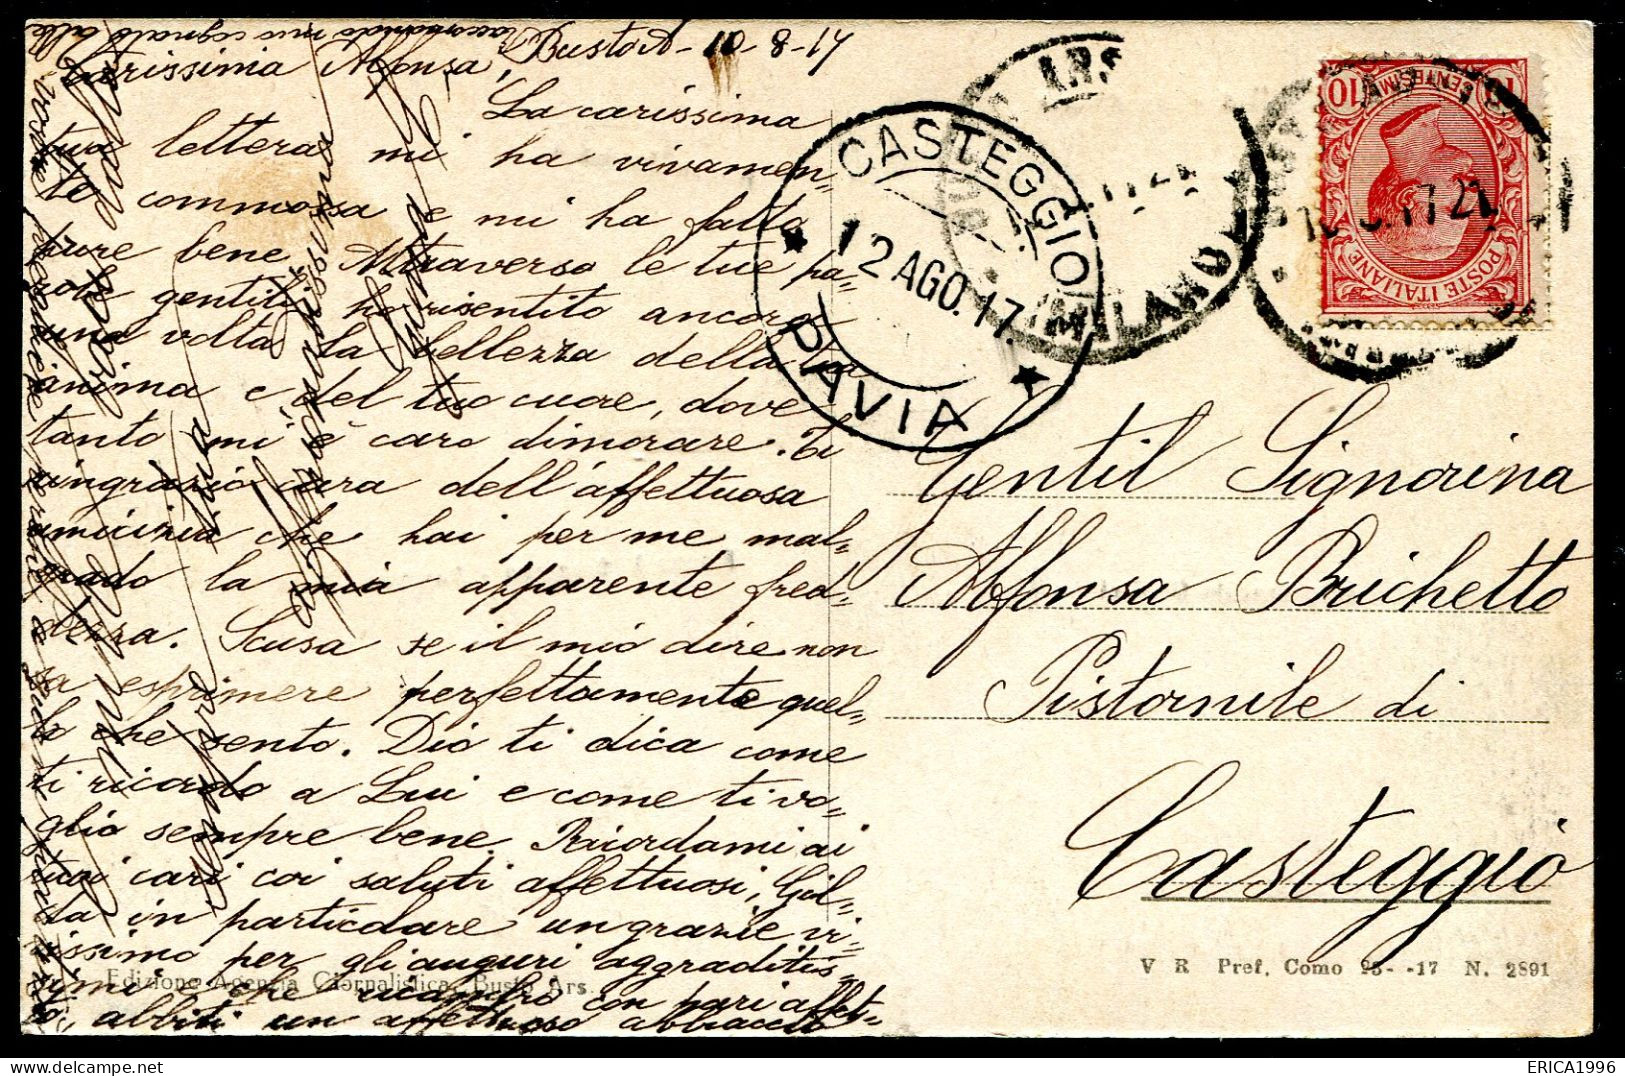 Busto A- 10-8-17
Carissima Alfonsa,
La carissima
tua lettera mi ha vivamen-
te commossa e mi ha fatto
pure bene. Attraverso le tue pa-
role gentili ho risentito ancora
una volta la bellezza della tua
anima e del tuo cuore, dove
tanto mi è caro dimorare. Ti
ringrazio cara dell'affettuosa
amicizia che hai per me mal-
grado la mia apparente fred-
dezza. Scusa se il mio dire non
sa esprimere perfettamente quel-
lo che sento. Dio ti dica come
ti ricordo a Lui e come ti vo-
glio sempre bene. Ricordami ai
tuoi cari coi saluti affettuosi, Gil-
da in particolare un grazie vi-
vissimo per gli auguri aggraditis-
simi e che ricambio con pari affet-
to, abbiti un affettuoso abbraccio
raccomando mio cognato alle
vostre preghiere
CASTEGGIO
12 AGO. 17.
PAVIA
MILANO
10 CENTESIMI 10
POSTE ITALIANE
17 21
Gentil Signorina
Alfonsa Brichetto
Pistornile di
Casteggio
Edizione Agenzia Giornalistica, Busto Ars.
V R Pref. Como 23- -17 N. 2891
ERICA1996